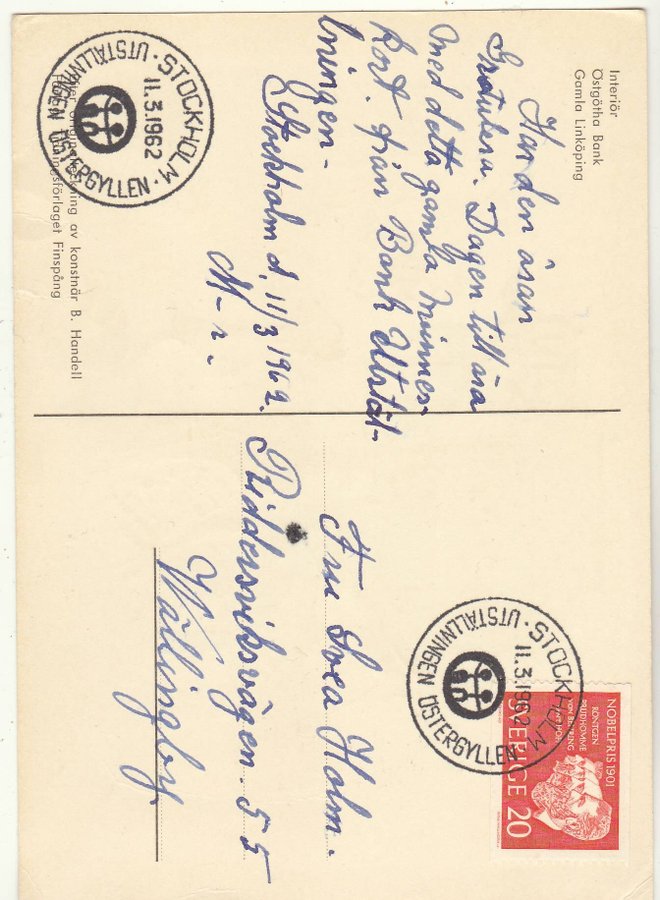 Interiör
Östgötha Bank
Gamla Linköping
Har den äran
Gratulera. Dagen till ära
med detta gamla minnes-
kort. från Bank Utstäl-
lningen-
Stockholm d. 11/3 1962.
M-r-
STOCKHOLM · UTSTÄLLNINGEN ÖSTERGYLLEN ·
11.3.1962
ning av konstnär B. Handell
ningsförlaget Finspång
STOCKHOLM · UTSTÄLLNINGEN ÖSTERGYLLEN
11.3.1962
NOBELPRIS 1901
RÖNTGEN
PRUDHOMME
VON BEHRING
VAN'T HOFF
SVERIGE 20
Fru Svea Holm.
Riddersviksvägen. 55
Wällingby